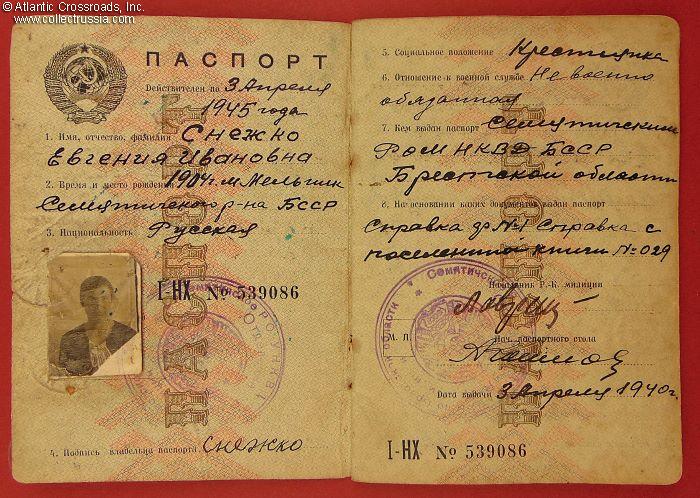 © Atlantic Crossroads, Inc.
www.collectrussia.com
ПАСПОРТ
Действителен по 3 Апреля
1945 года
1. Имя, отчество, фамилия Снежко
Евгения Ивановна
2. Время и место рождения 1904 г. м. Мельник
Семятичского р-на БССР
3. Национальность Русская
I-НХ № 539086
4. Подпись владельца паспорта Снежко
5. Социальное положение Крестьянка
6. Отношение к военной службе Не военно
обязанная
7. Кем выдан паспорт Семятичским
РОМ НКВД БССР
Брестской области
8. На основании каких документов выдан паспорт
Справка ф №1 Справка с
книги № 029
Начальник Р.-К. милиции
М. П.
Нач. паспортного стола
Дата выдачи 3 Апреля 1940 г.
I-НХ № 539086